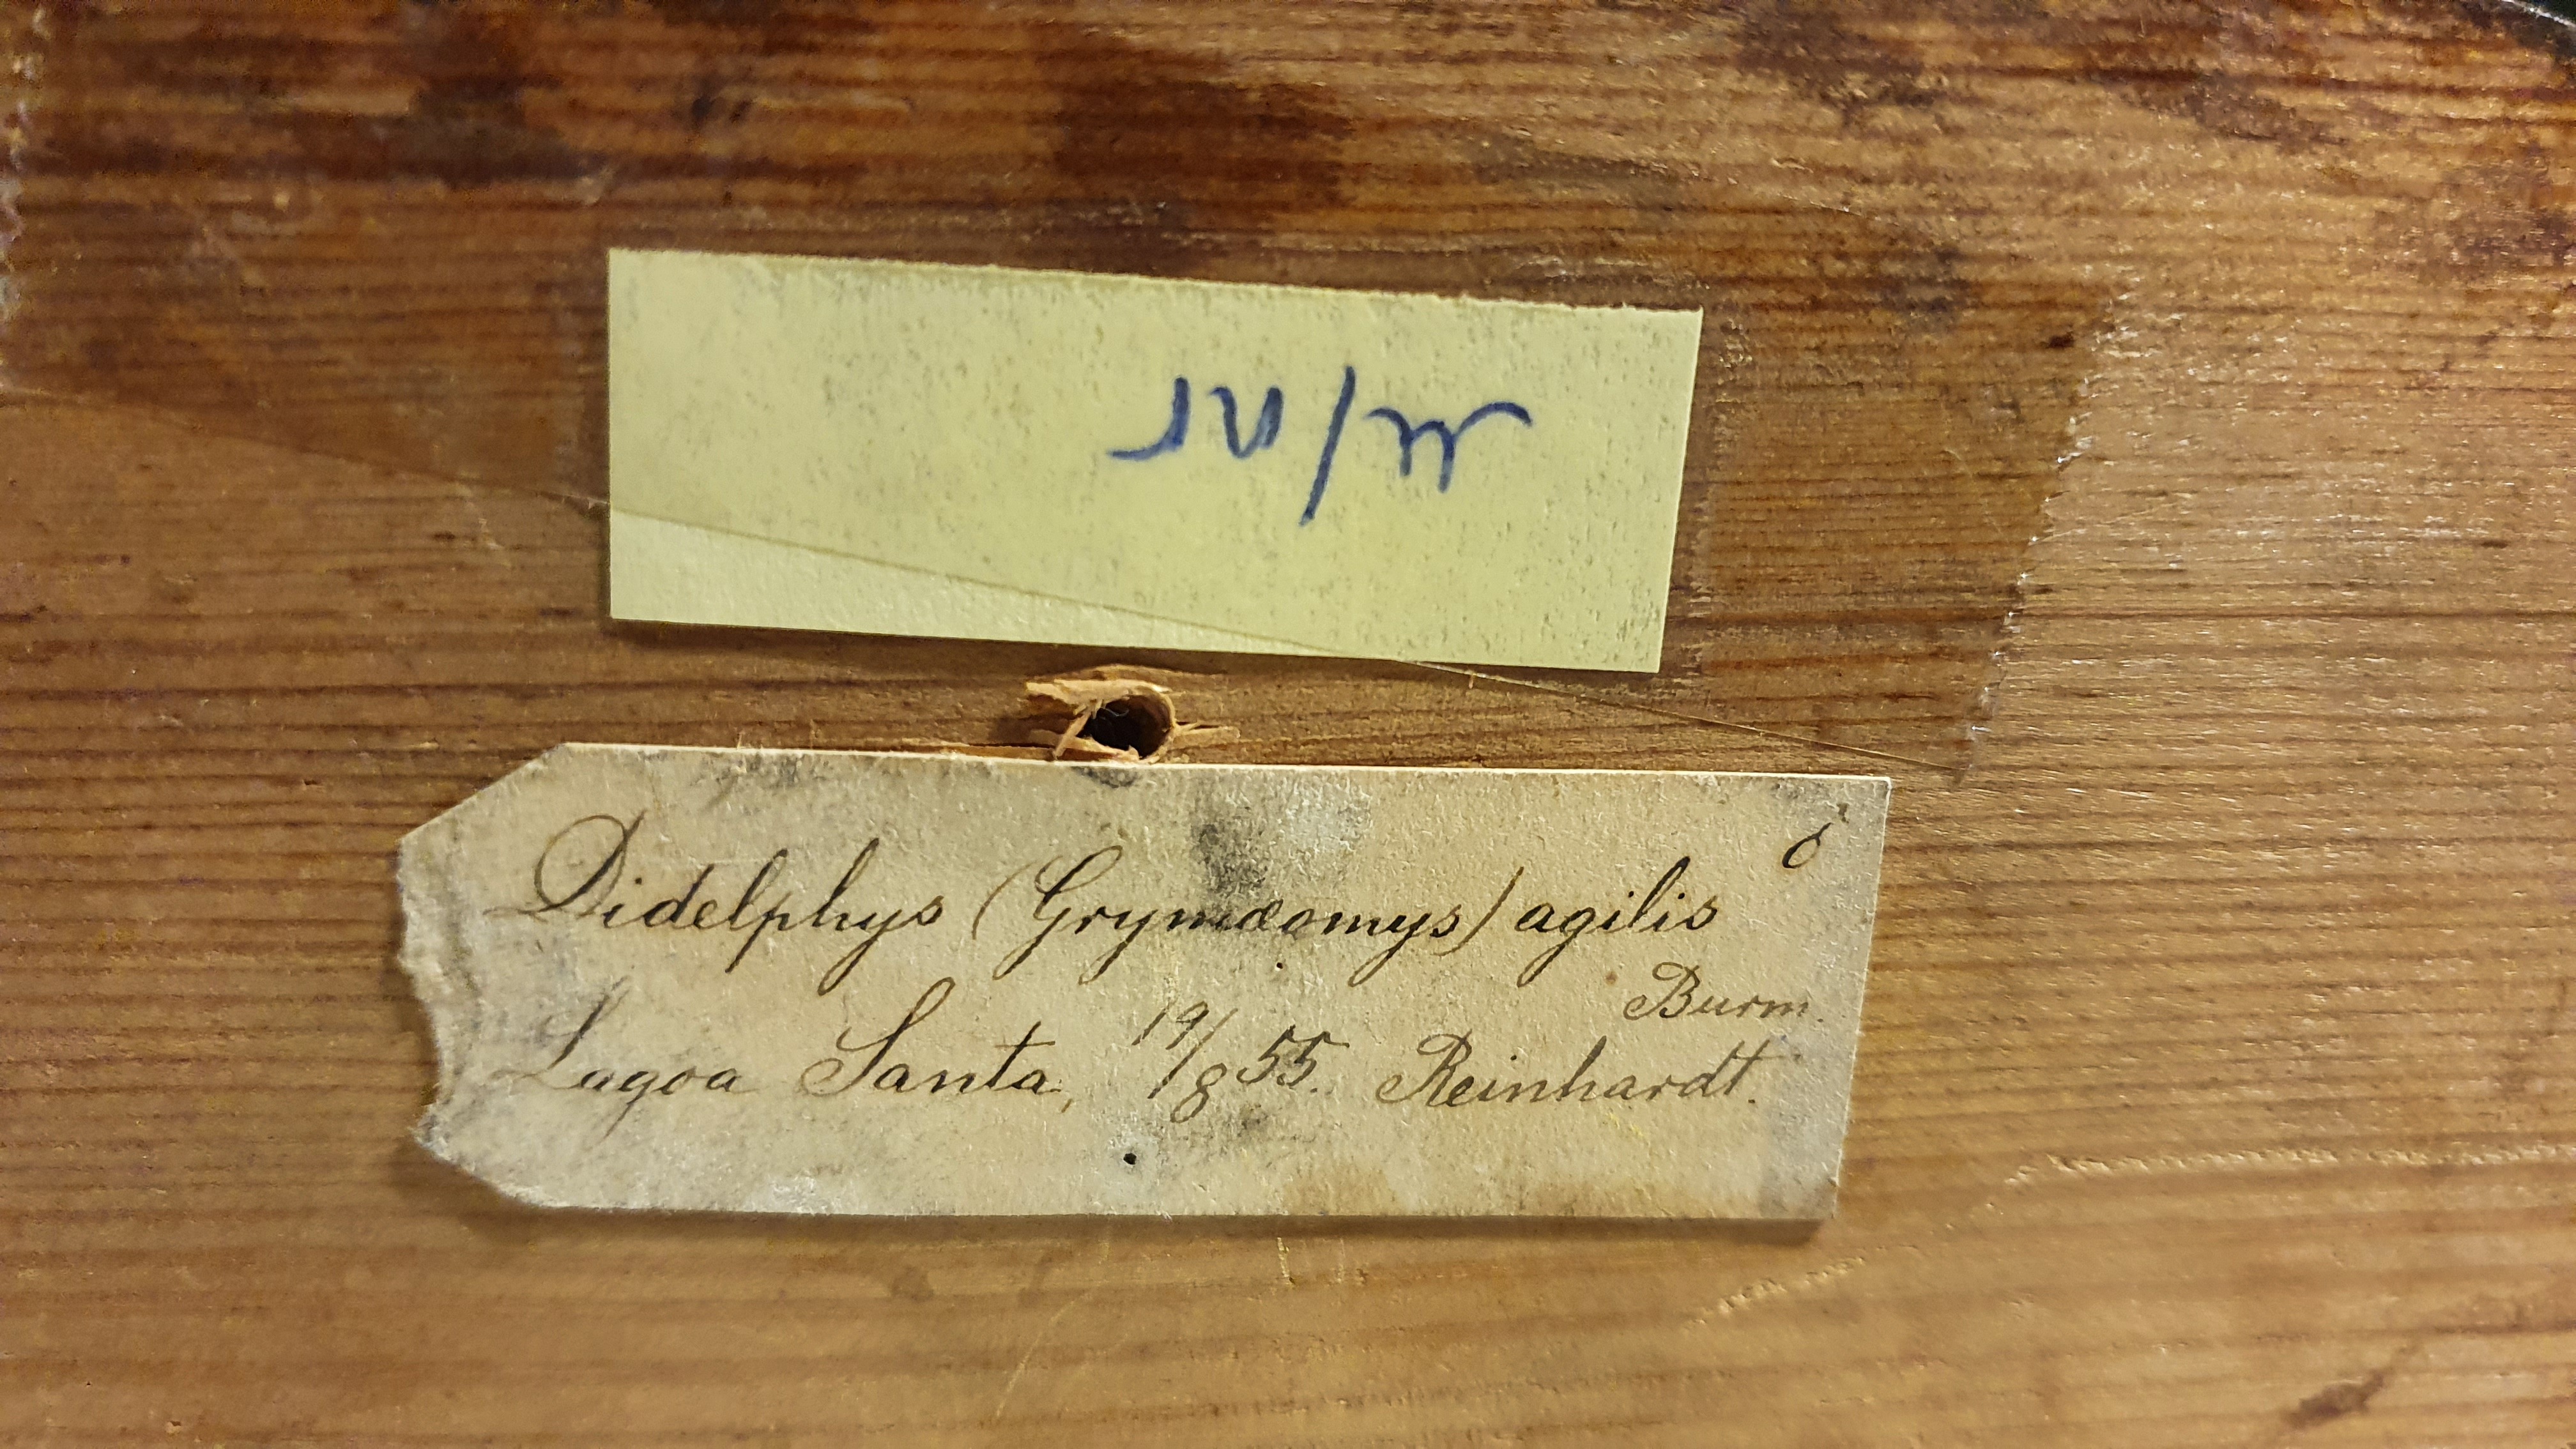 u/nr
♂
Didelphys (Grymæomys) agilis
Burm.
Lagoa Santa, 19/8 55. Reinhardt.